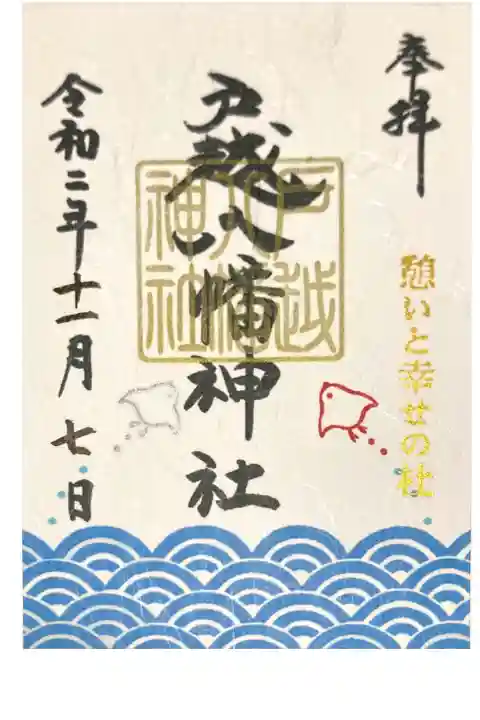 奉拝
憩いと幸せの社
戸越八幡神社
戸越
八幡
神社
令和二年十一月七日